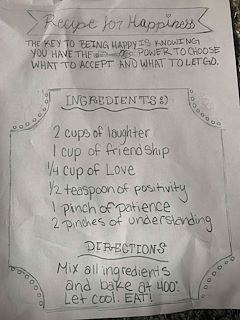 Recipe for Happiness
THE KEY TO BEING HAPPY IS KNOWING
YOU HAVE THE POWER TO CHOOSE
WHAT TO ACCEPT AND WHAT TO LET GO.
INGREDIENTS:)
2 cups of laughter
1 cup of friendship
1/4 cup of Love
1/2 teaspoon of positivity
1 pinch of patience
2 pinches of understanding
DIRECTIONS
Mix all ingredients
and bake at 400°
Let cool. EAT!